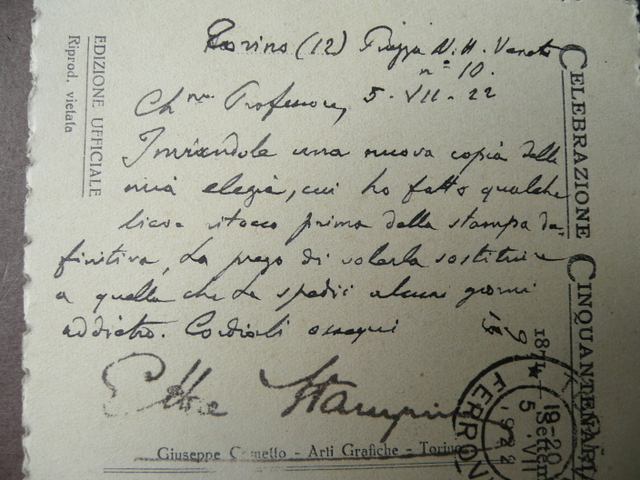 Torino (12) Piazza V. Veneto
n° 10.
Ch.mo Professore, 5-VII-22
Inviandole una nuova copia della
mia elegia, cui ho fatto qualche
lieve ritocco prima della stampa de-
finitiva, La prego di volerla sostituire
a quella che Le spedii alcuni giorni
addietro. Cordiali ossequi
Ettore Stampini
EDIZIONE UFFICIALE
Riprod. vietata
CELEBRAZIONE CINQUANTENARIA
1871
Settem
18-20
5 VII
1922
FERROV
Giuseppe Cometto - Arti Grafiche - Torino